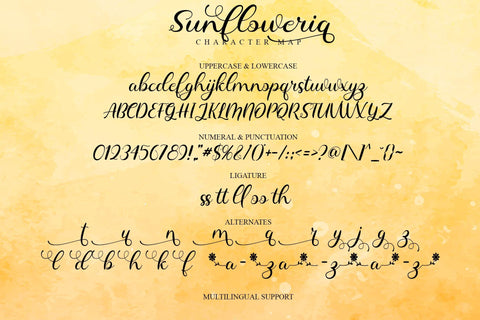 Sunfloweriq
CHARACTER MAP
UPPERCASE & LOWERCASE
abcdefghijklmnopqrstuvwxyz
ABCDEFGHIJKLMNOPQRSTUVWXYZ
NUMERAL & PUNCTUATION
0123456789!,"#$%&/()*+-/:;<=>?@[\]^_`{}~
LIGATURE
ss tt ll oo th
ALTERNATES
t u n m q r y j g z
l d b h k f a-za-za-za-z
MULTILINGUAL SUPPORT